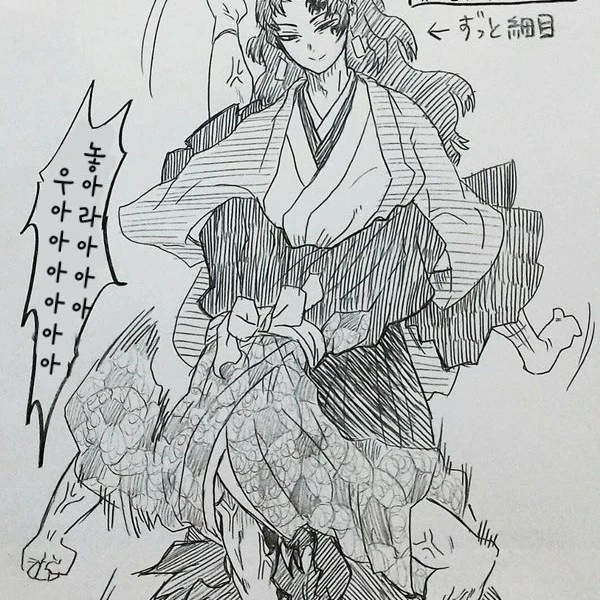 ← ずっと細目
놓아라아아아
우아아아아아아